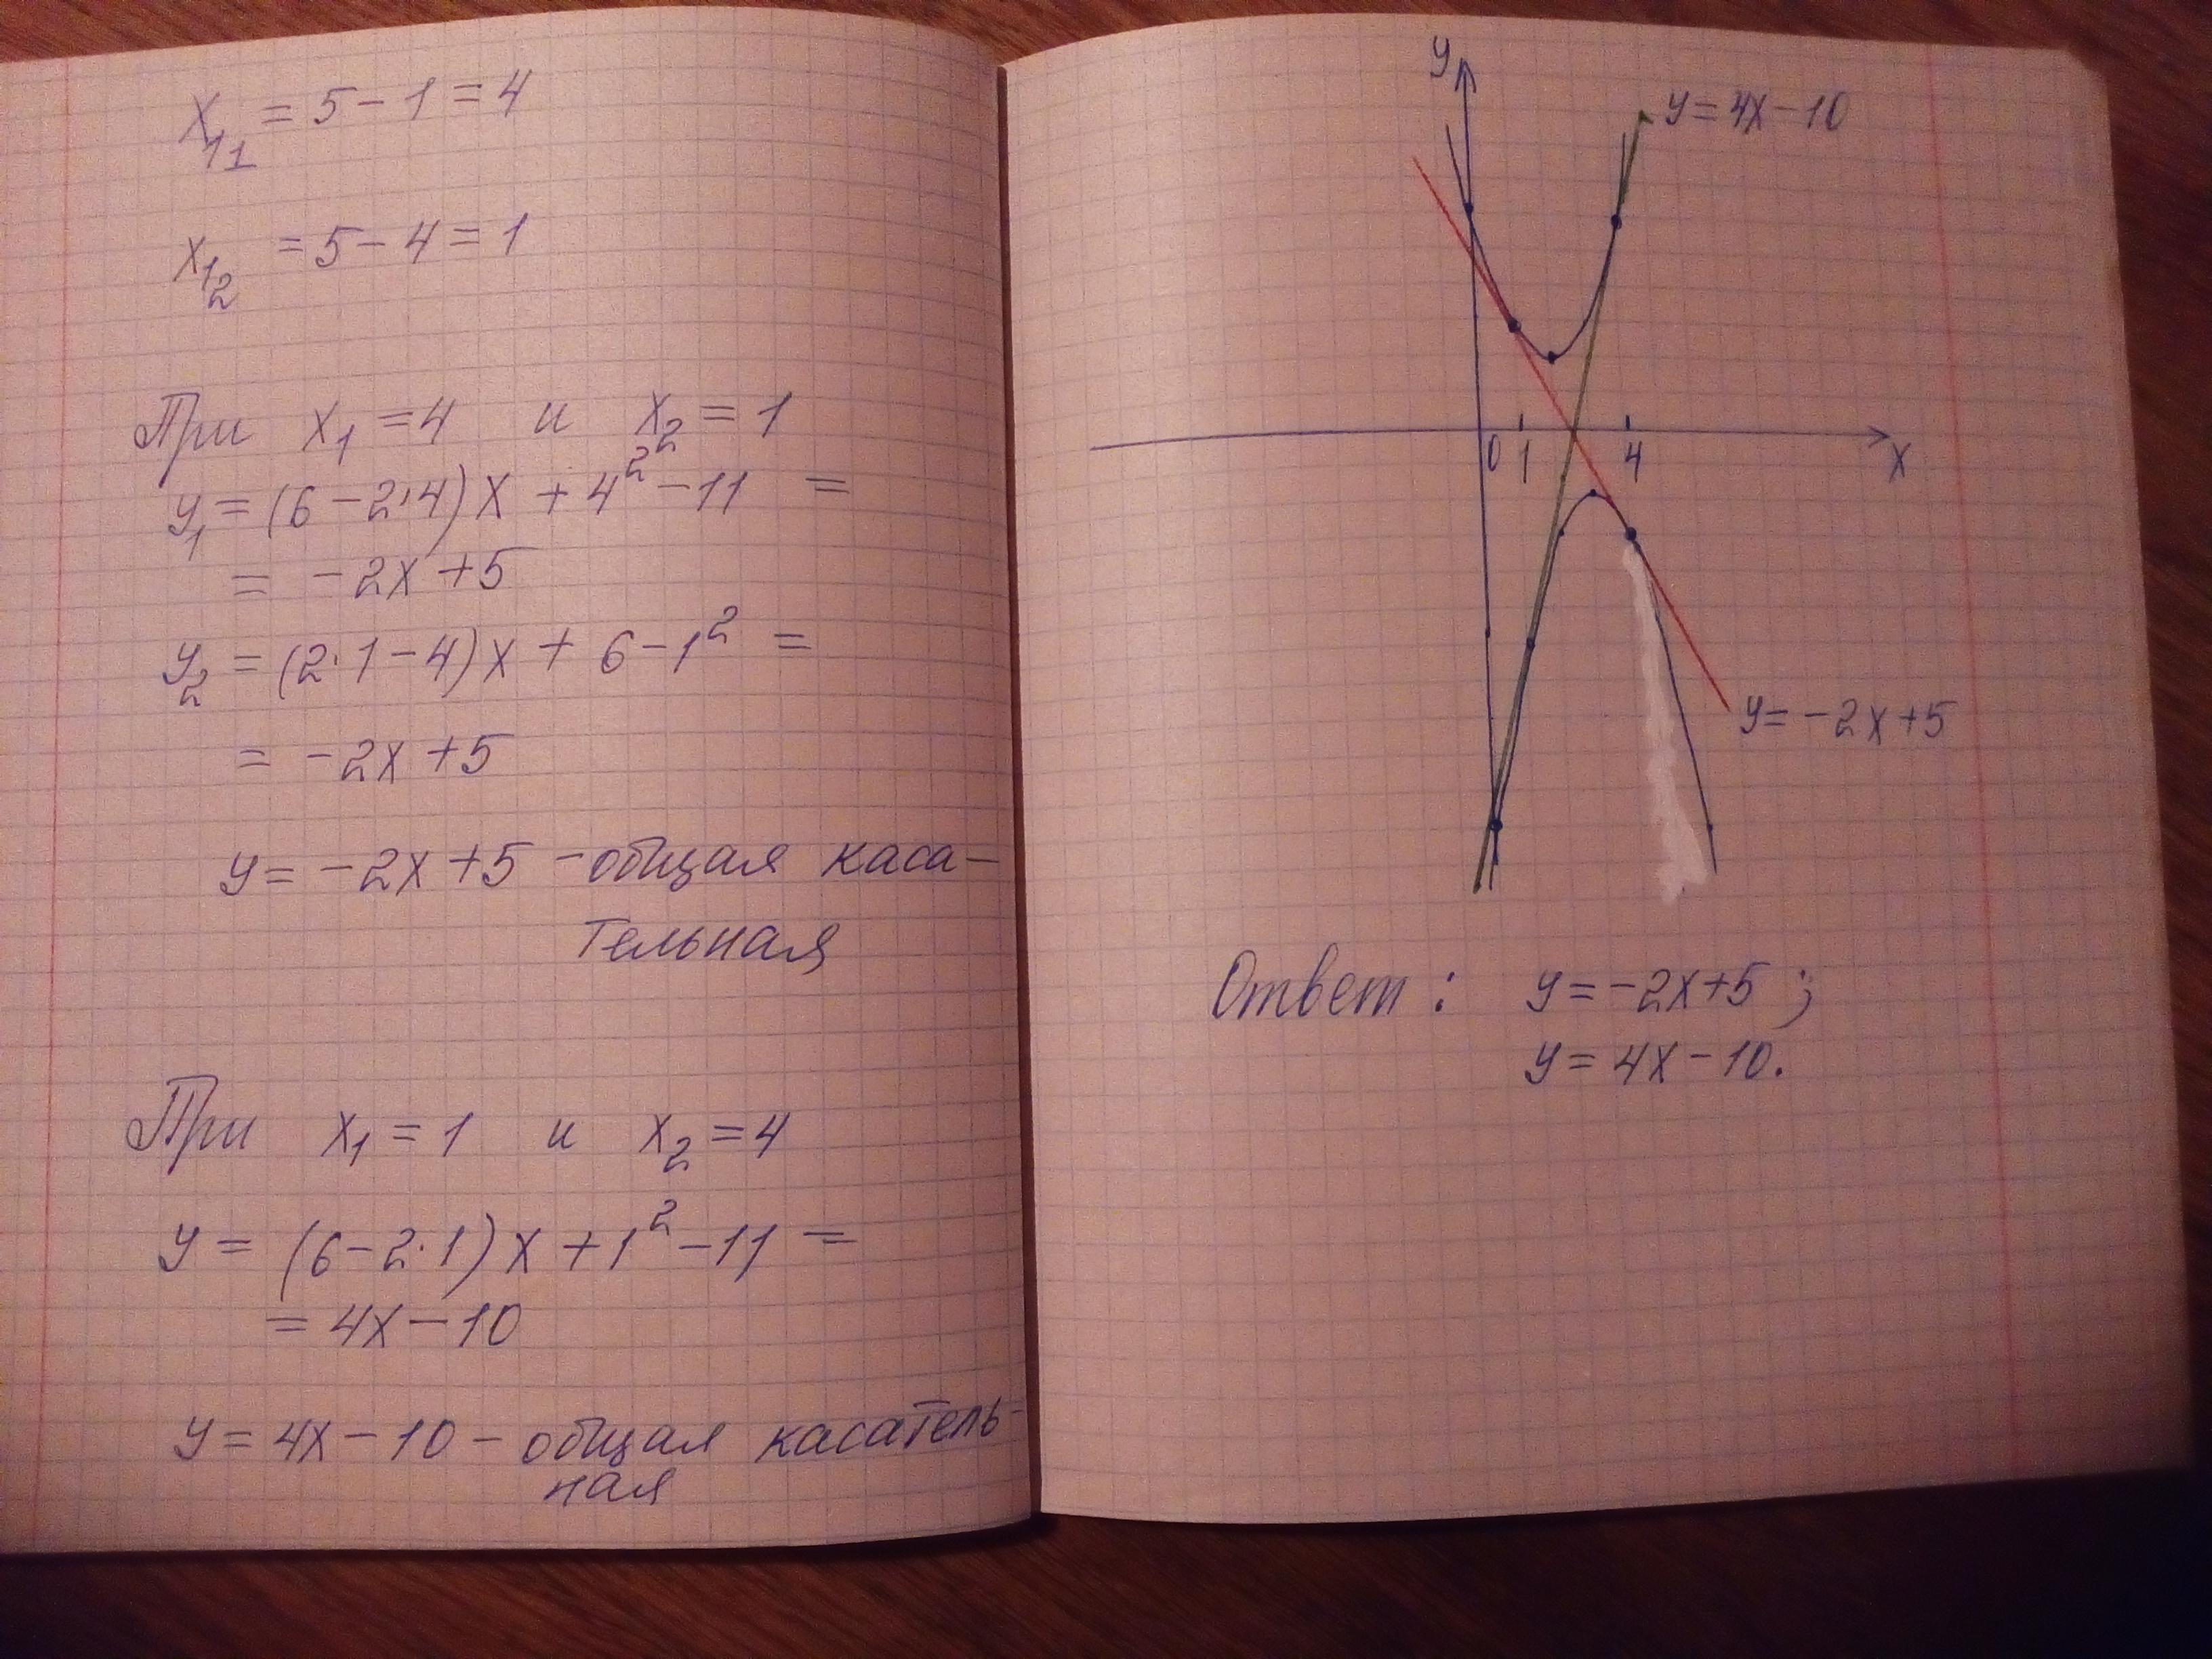 x₁₁ = 5 - 1 = 4
x₁₂ = 5 - 4 = 1
При x₁ = 4 и x₂ = 1
y₁ = (6 - 2·4)x + 4² - 11 =
= -2x + 5
y₂ = (2·1 - 4)x + 6 - 1² =
= -2x + 5
y = -2x + 5 - общая каса-
тельная
При x₁ = 1 и x₂ = 4
y = (6 - 2·1)x + 1² - 11 =
= 4x - 10
y = 4x - 10 - общая касатель-
ная
y
y = 4x - 10
0 1 4 x
y = -2x + 5
Ответ: y = -2x + 5;
y = 4x - 10.